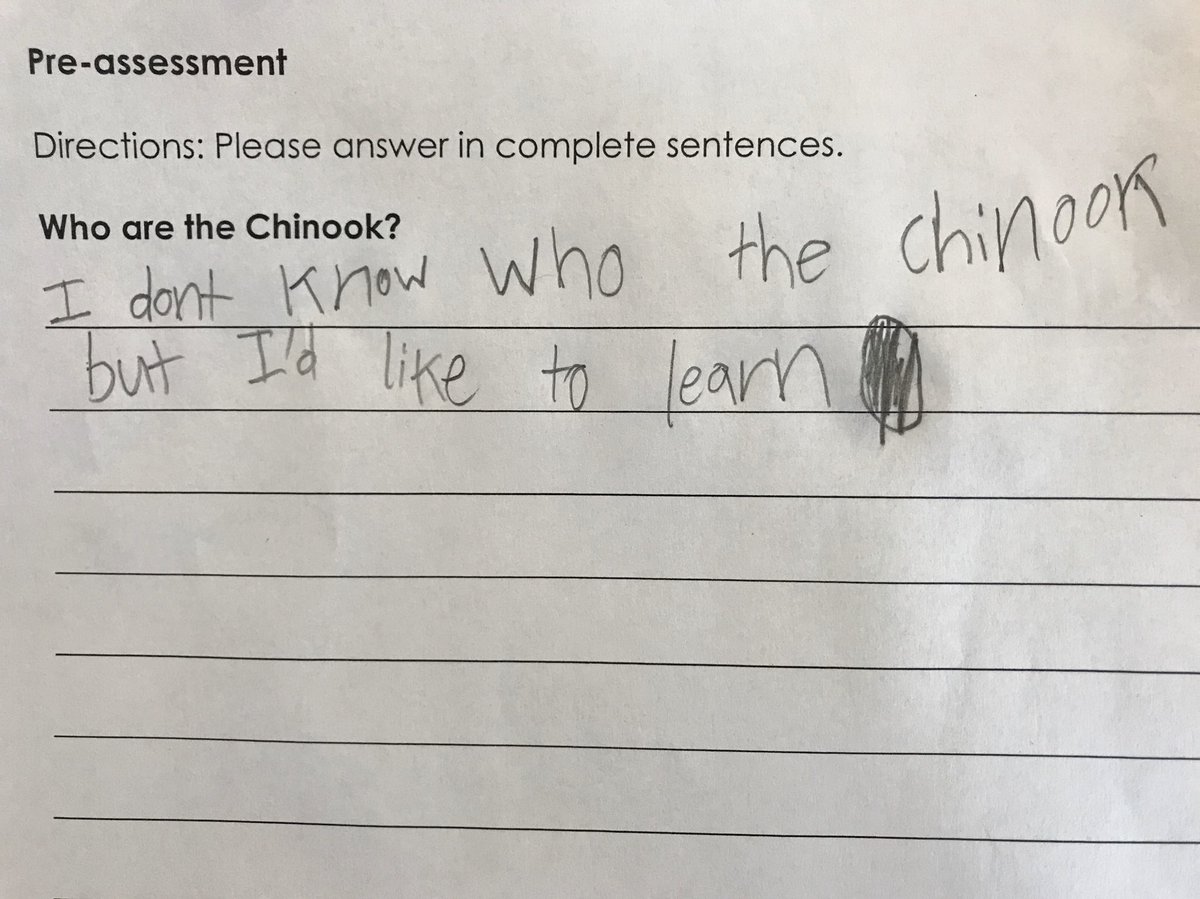 Pre-assessment
Directions: Please answer in complete sentences.
Who are the Chinook?
I dont know who the chinook
but I'd like to learn